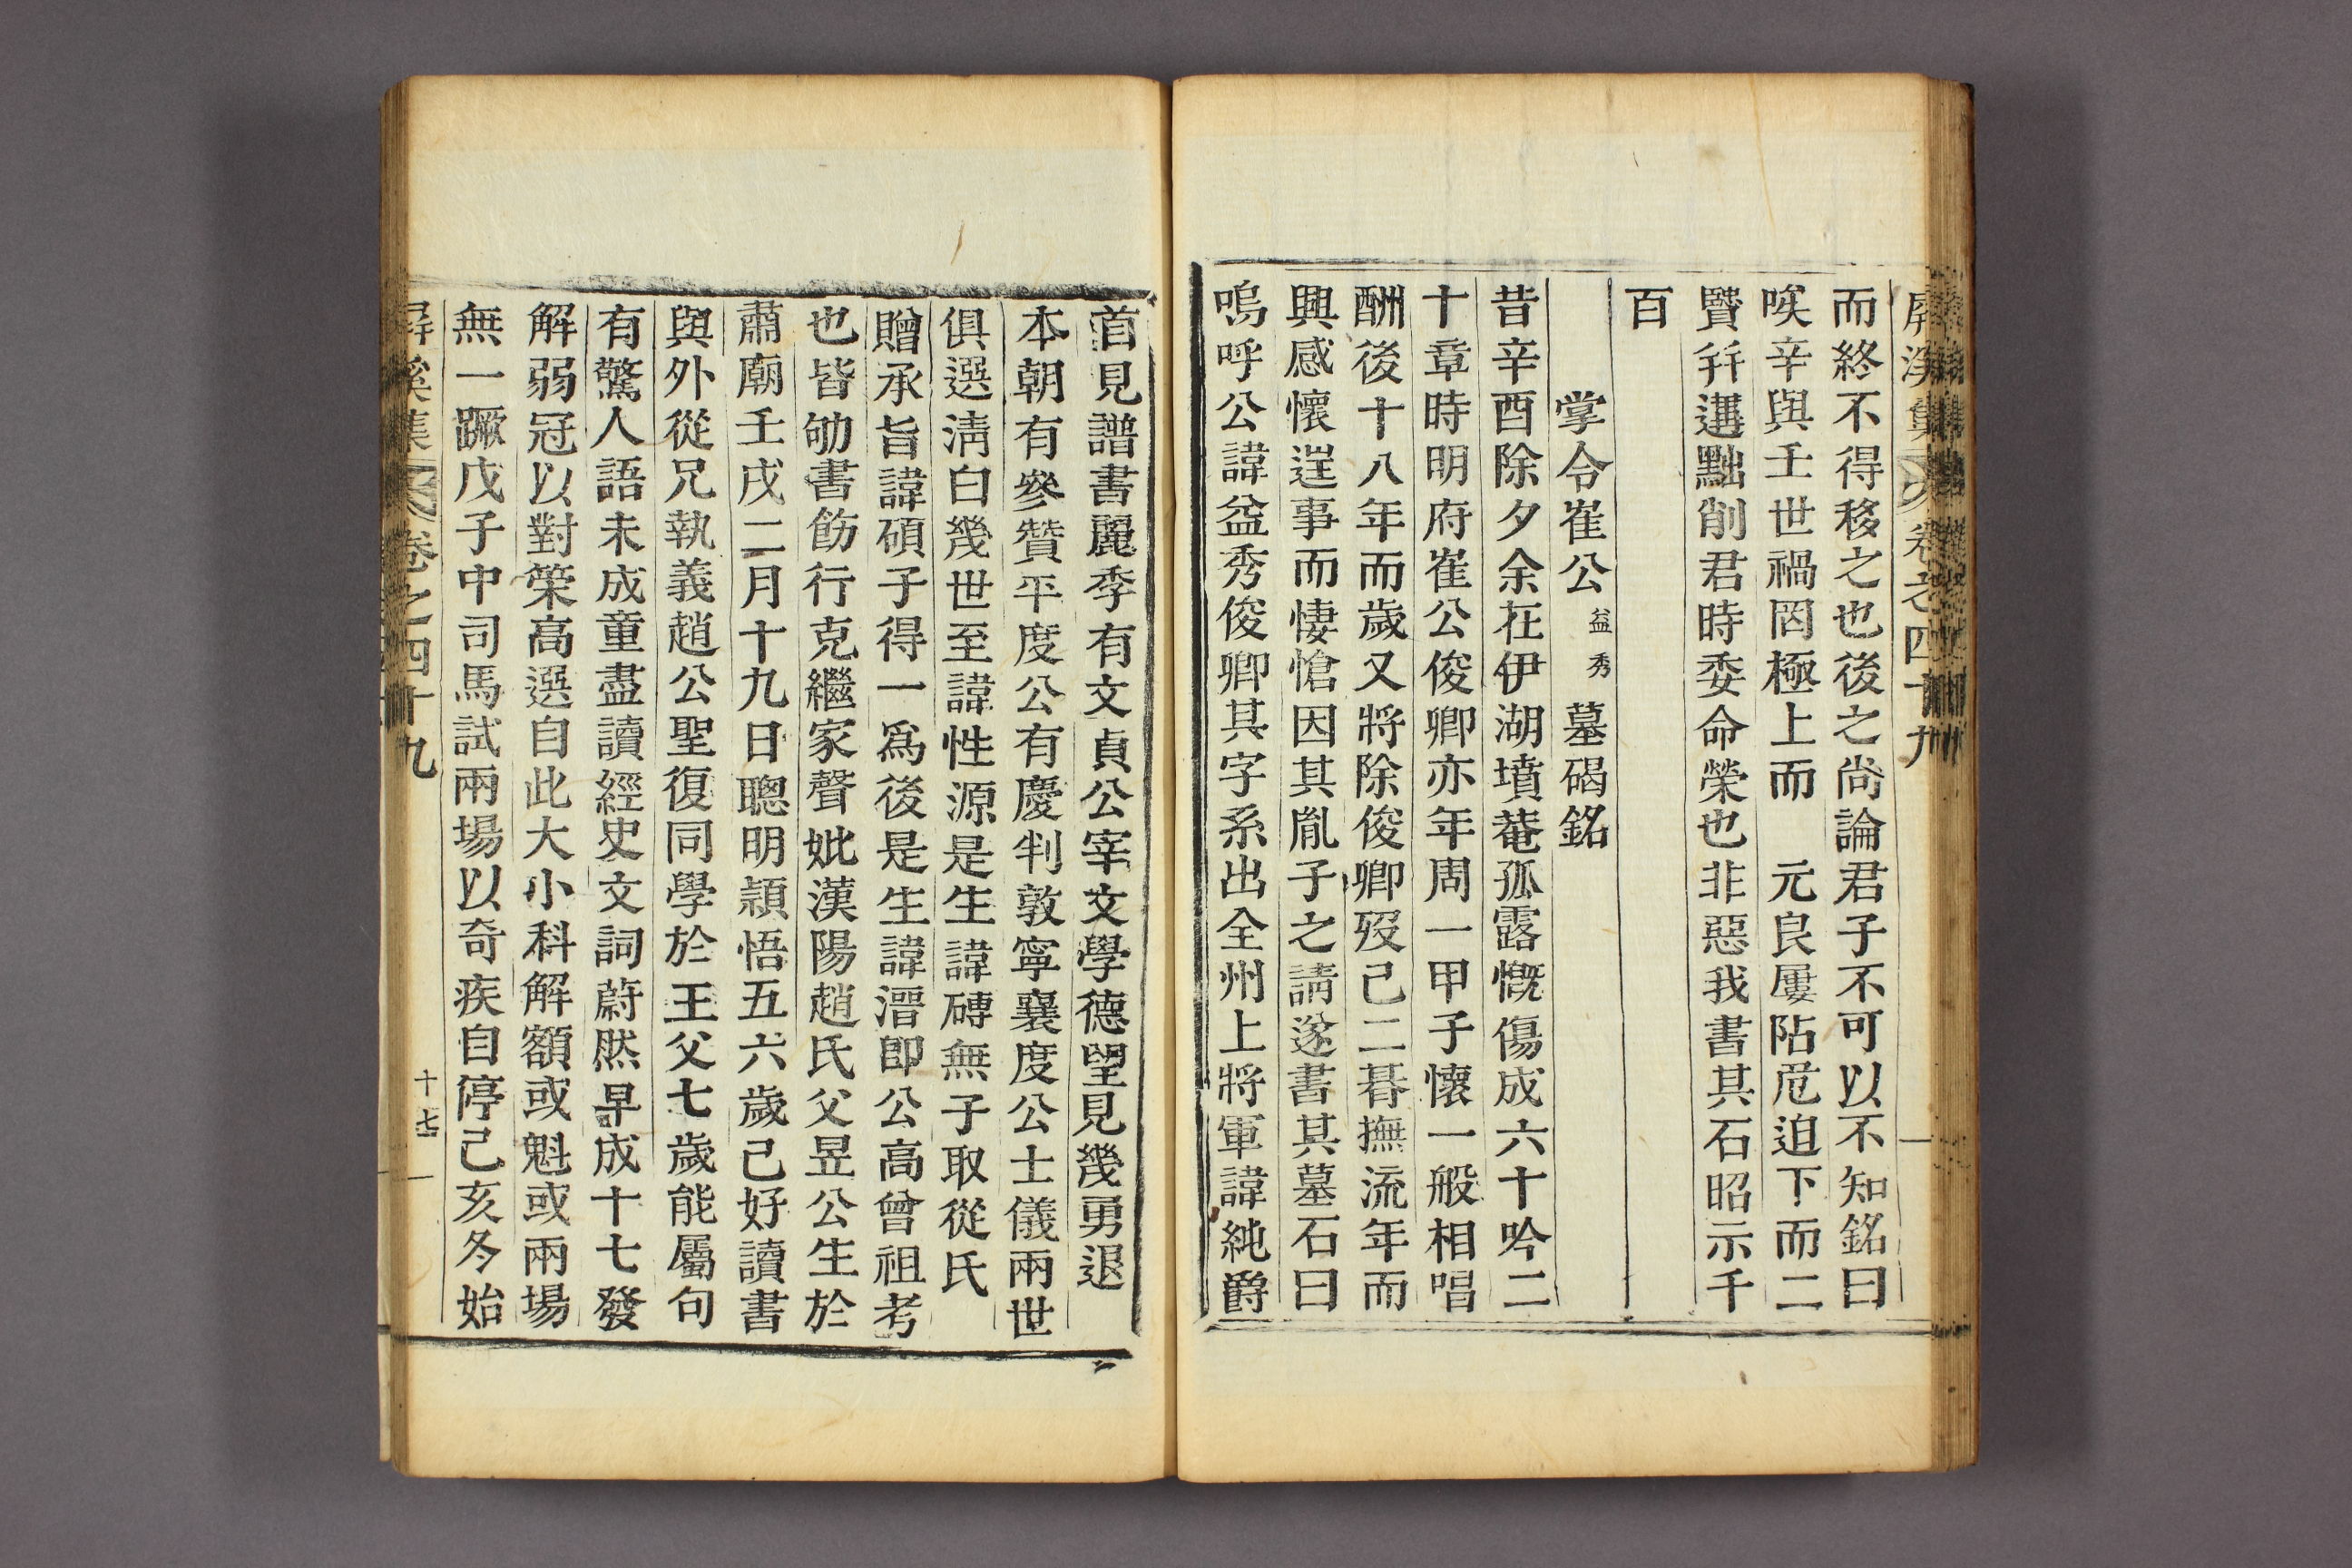 屛溪集 卷之四十九
而終不得移之也後之尙論君子不可以不知銘曰
唉辛與壬世禍罔極上而 元良屢阽危迫下而二
賢幷遘黜削君時委命榮也非惡我書其石昭示千
百
掌令崔公益秀墓碣銘
昔辛酉除夕余在伊湖墳菴孤露慨傷成六十吟二
十章時明府崔公俊卿亦年周一甲子懷一般相唱
酬後十八年而歲又將除俊卿歿已二朞撫流年而
興感懷逞事而悽愴因其胤子之請遂書其墓石曰
嗚呼公諱益秀俊卿其字系出全州上將軍諱純爵
首見譜書麗季有文貞公宰文學德望見幾勇退
本朝有參贊平度公有慶判敦寧襄度公士儀兩世
俱選淸白幾世至諱性源是生諱磚無子取從氏
贈承旨諱碩子得一爲後是生諱溍卽公高曾祖考
也皆劬書飭行克繼家聲妣漢陽趙氏父昱公生於
肅廟壬戌二月十九日聰明穎悟五六歲已好讀書
與外從兄執義趙公聖復同學於王父七歲能屬句
有驚人語未成童盡讀經史文詞蔚然早成十七發
解弱冠以對策高選自此大小科解額或魁或兩場
無一蹶戊子中司馬試兩場以奇疾自停己亥冬始
屛溪集 卷之四十九 十七